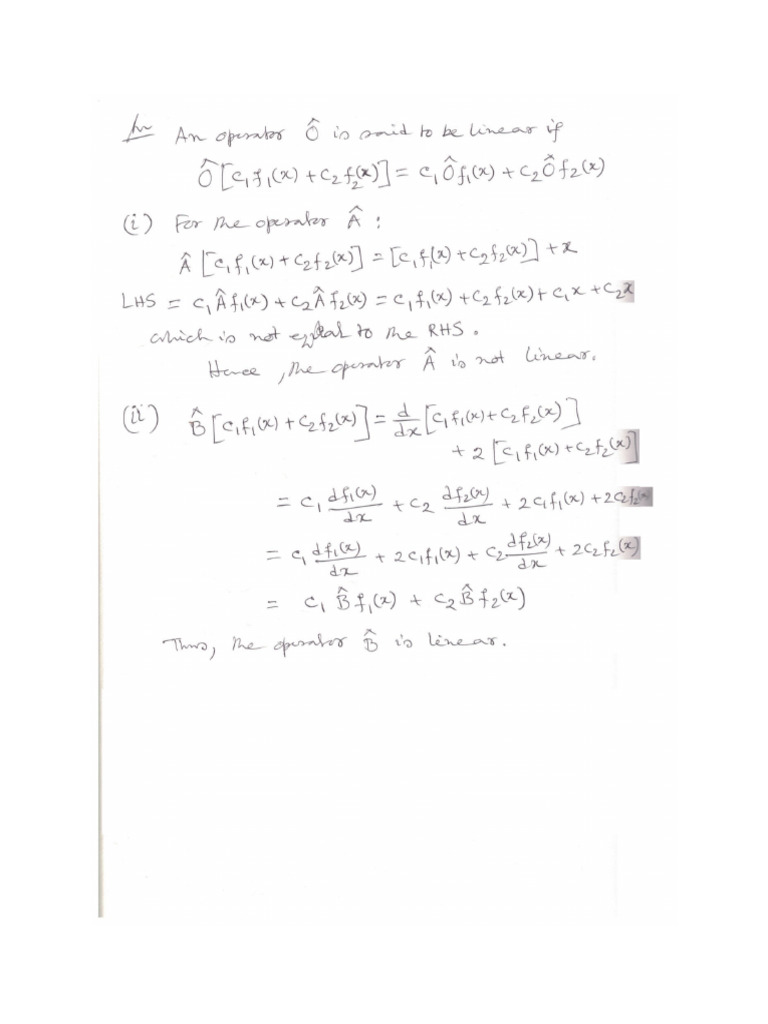 An operator Ô is said to be linear if
Ô[c₁f₁(x) + c₂f₂(x)] = c₁Ôf₁(x) + c₂Ôf₂(x)
(i) For the operator Â :
Â[c₁f₁(x) + c₂f₂(x)] = [c₁f₁(x) + c₂f₂(x)] + x
LHS = c₁Âf₁(x) + c₂Âf₂(x) = c₁f₁(x) + c₂f₂(x) + c₁x + c₂x
which is not equal to the RHS.
Hence, the operator Â is not linear.
(ii) B̂[c₁f₁(x) + c₂f₂(x)] = d/dx [c₁f₁(x) + c₂f₂(x)]
+ 2[c₁f₁(x) + c₂f₂(x)]
= c₁ df₁(x)/dx + c₂ df₂(x)/dx + 2c₁f₁(x) + 2c₂f₂(x)
= c₁ df₁(x)/dx + 2c₁f₁(x) + c₂ df₂(x)/dx + 2c₂f₂(x)
= c₁B̂f₁(x) + c₂B̂f₂(x)
Thus, the operator B̂ is linear.